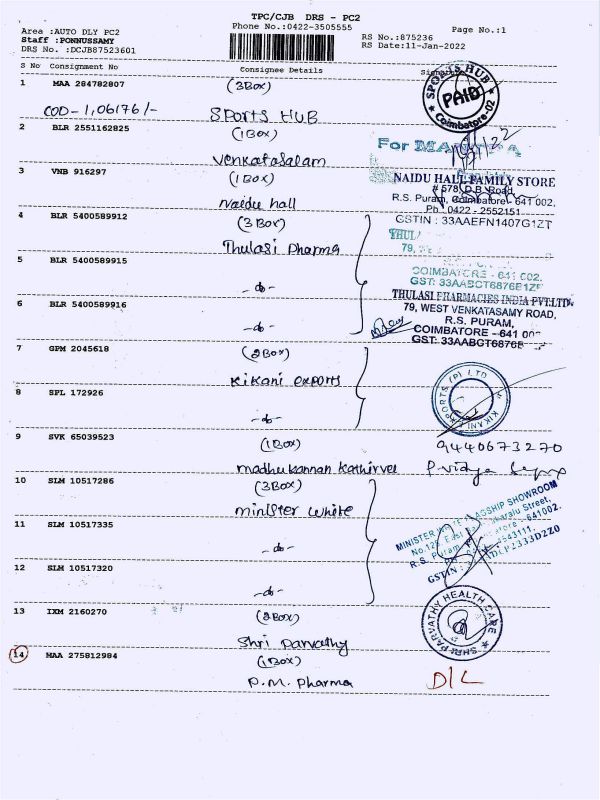 TPC/CJB DRS - PC2
Area :AUTO DLY PC2 Phone No.:0422-3505555 Page No.:1
Staff :PONNUSSAMY RS No.:875236
DRS No. :DCJB87523601 RS Date:11-Jan-2022
S No Consignment No Consignee Details
1 MAA 284782807 (3Box)
COD-1,06176/- SPORTS HUB
SPORTS HUB PAID Coimbatore-02
2 BLR 2551162825 (1Box)
Venkatasalam
For
3 VNB 916297 (1Box)
Naidu hall
NAIDU HALL FAMILY STORE
# 578, D.B. Road,
R.S. Puram, Coimbatore - 641 002.
Ph : 0422 - 2552151
GSTIN : 33AAEFN1407G1ZT
4 BLR 5400589912 (3Box)
Thulasi pharma
THUL
79,
5 BLR 5400589915
-do-
COIMBATORE - 641 002.
GST: 33AABCT6876B1ZF
6 BLR 5400589916
-do-
THULASI PHARMACIES INDIA PVT.LTD.
79, WEST VENKATASAMY ROAD,
R.S. PURAM,
COIMBATORE - 641 00
GST: 33AABCT6876B
7 GPM 2045618 (2Box)
Kikani exports
8 SPL 172926
-do-
KIKANI EXPORTS (P) LTD
9 SVK 65039523 (1Box)
9440673270
madhukannan Kathirvel P. vidya
10 SLM 10517286 (3Box)
minister white
11 SLM 10517335
-do-
12 SLM 10517320
-do-
MINISTER WHITE FLAGSHIP SHOWROOM
R.S. Puram
641002.
2543111.
GSTIN :
13 IXM 2160270 (2Box)
Shri parvathy
SHRI PARVATHY HEALTH CARE
14 MAA 275812984 (1Box)
P.M. pharma D/L